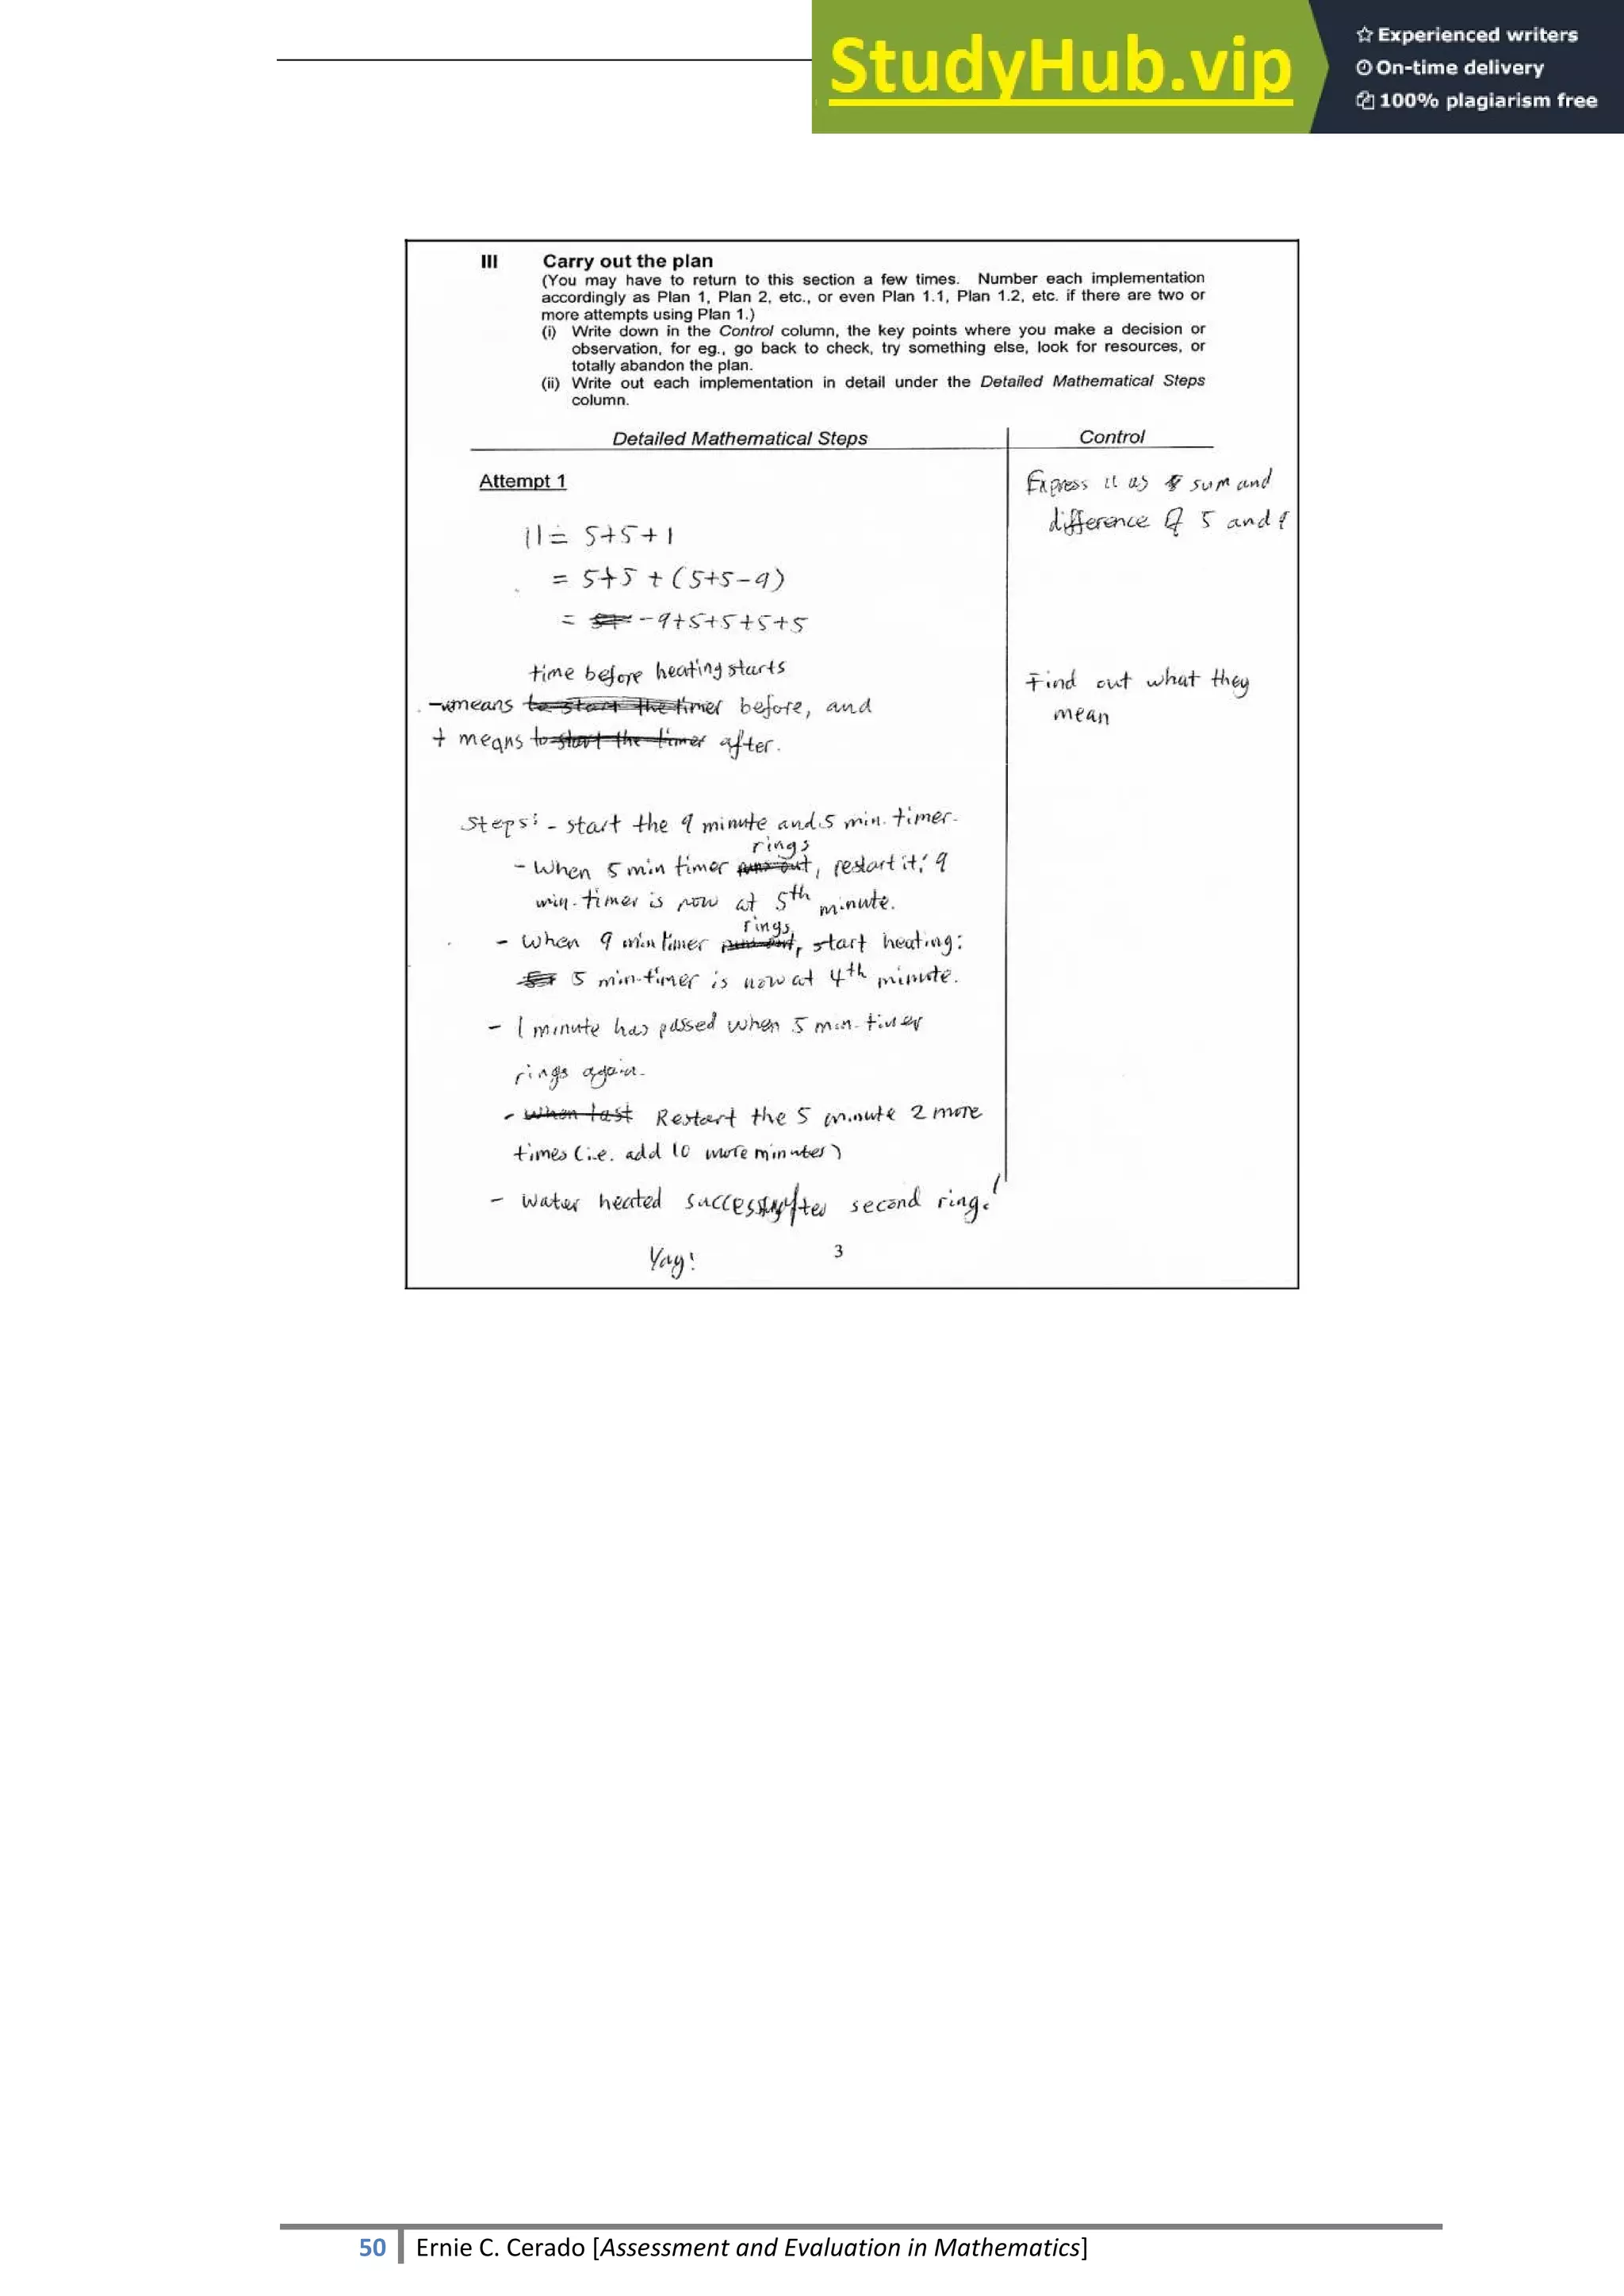 StudyHub.vip
Experienced writers
On-time delivery
100% plagiarism free
III Carry out the plan
(You may have to return to this section a few times. Number each implementation
accordingly as Plan 1, Plan 2, etc., or even Plan 1.1, Plan 1.2, etc. if there are two or
more attempts using Plan 1.)
(i) Write down in the Control column, the key points where you make a decision or
observation, for eg., go back to check, try something else, look for resources, or
totally abandon the plan.
(ii) Write out each implementation in detail under the Detailed Mathematical Steps
column.
Detailed Mathematical Steps Control
Attempt 1
Express 11 as sum and
difference of 5 and 9
11 = 5+5+1
= 5+5+(5+5-9)
= -9+5+5+5+5
time before heating starts
- means before, and
+ means after.
Find out what they
mean
Steps: - start the 9 minute and 5 min. timer.
- When 5 min timer rings, restart it; 9
min-timer is now at 5th minute.
- When 9 min timer rings, start heating:
5 min-timer is now at 4th minute.
- 1 minute has passed when 5 min-timer
rings again.
- Restart the 5 minute 2 more
times (i.e. add 10 more minutes)
- Water heated after second ring!
Yay!
3
50 Ernie C. Cerado [Assessment and Evaluation in Mathematics]